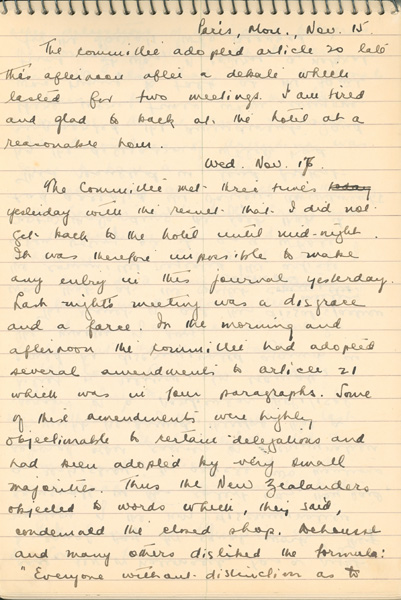 Paris, Mon., Nov. 15.
The committee adopted article 20 late
this afternoon after a debate which
lasted for two meetings. I am tired
and glad to back at the hotel at a
reasonable hour.
Wed. Nov. 17.
The Committee met three times today
yesterday with the result that I did not
get back to the hotel until mid-night.
It was therefore impossible to make
any entry in this journal yesterday.
Last night's meeting was a disgrace
and a farce. In the morning and
afternoon the committee had adopted
several amendments to article 21
which was in four paragraphs. Some
of these amendments were highly
objectionable to certain delegations and
had been adopted by very small
majorities. Thus the New Zealanders
objected to words which, they said,
condemned the closed shop. Dehousse
and many others disliked the formula:
"Everyone without distinction as to